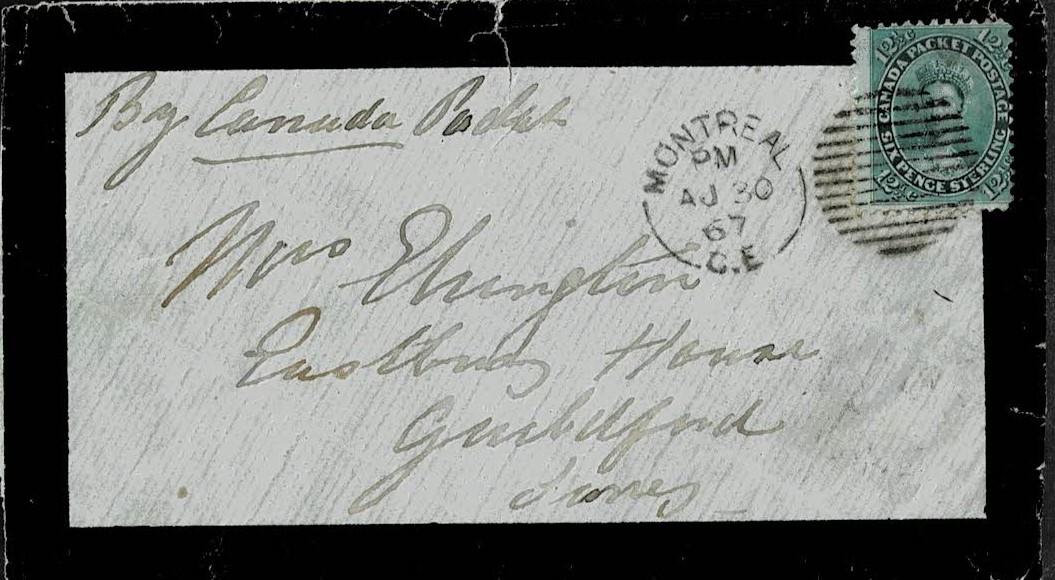 By Canada Packet
12½c 12½c
CANADA PACKET POSTAGE
SIX PENCE STERLING
12½c 12½c
MONTREAL
PM
AU 30
67
C.E
Mrs Elrington
Eastbury House
Guildford
Surrey